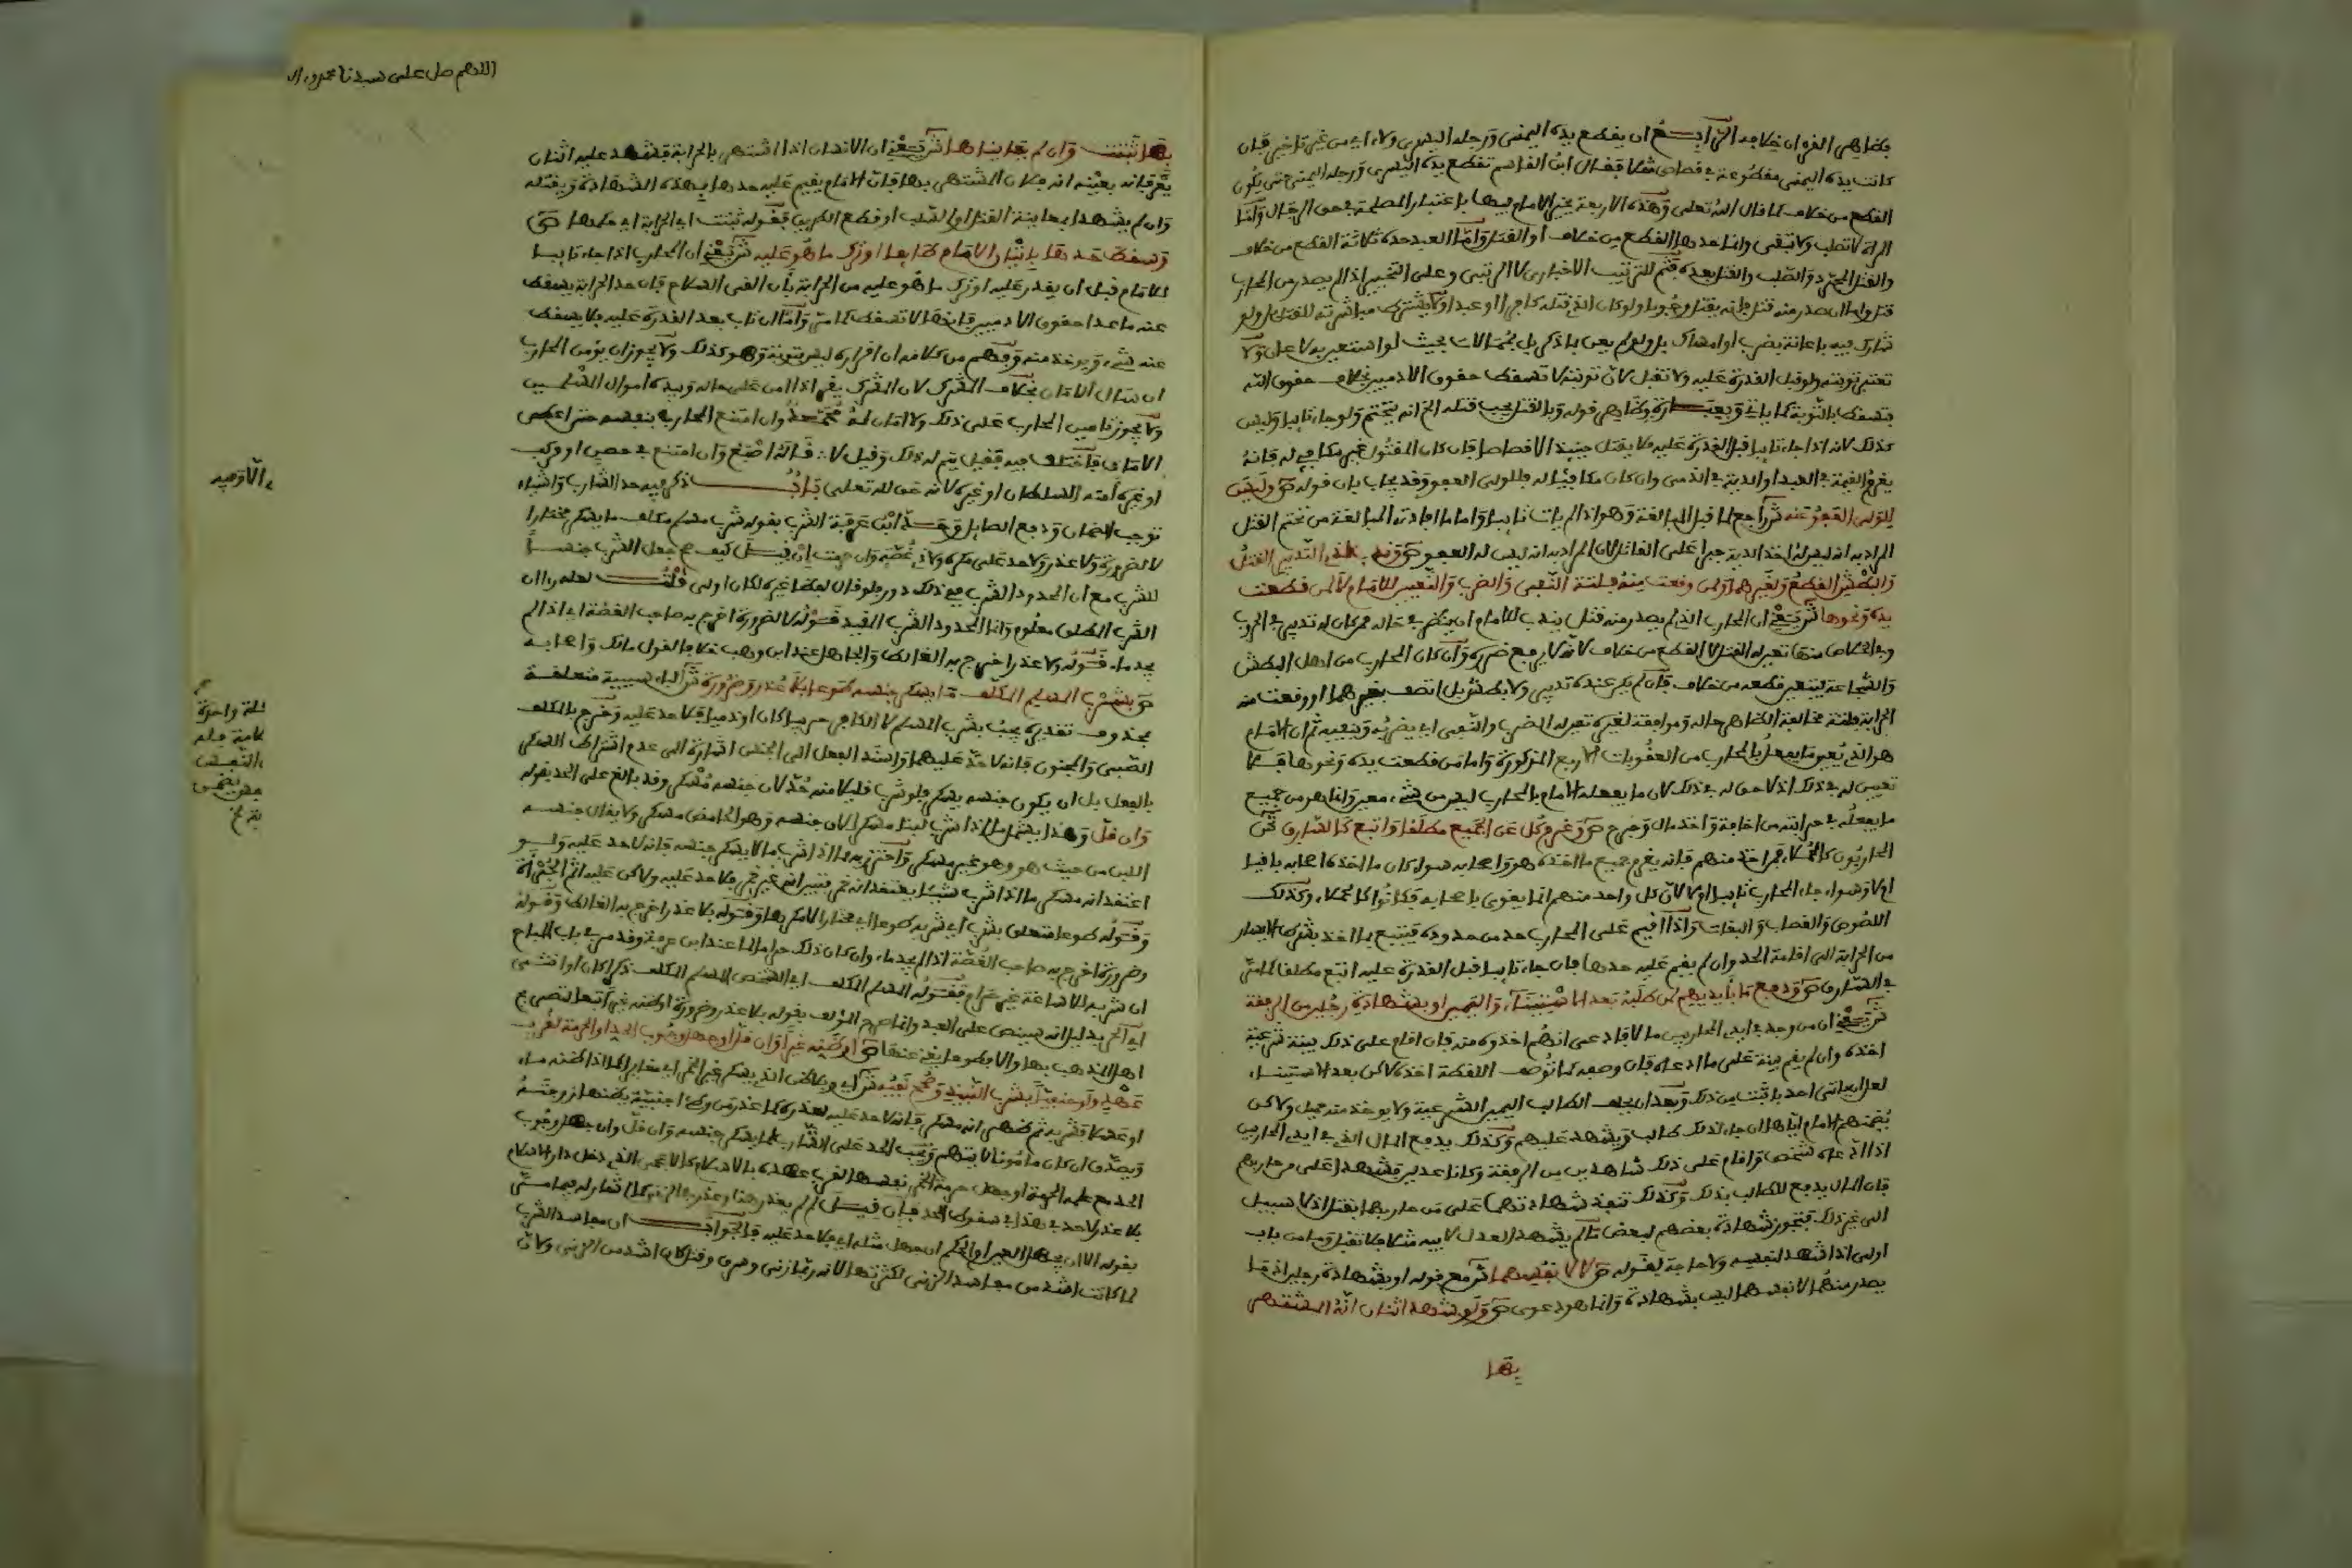 فظاهر القرءان خلافه الرابع ان يقطع يده اليمنى ورجله اليسرى ولاء اي من غير تاخير فان
كانت يده اليمنى مقطوعة في قصاص مثلا فقال ابن القاسم تقطع يده اليسرى ورجله اليمنى حتى يكون
القطع من خلاف كما قال الله تعلى وهذه الاربعة يخير الامام فيها باعتبار المصلحة في حق الرجال واما
المراة لا تصلب ولا تنفى وانما حدها القطع من خلاف او القتل واما العبد حده ثلاثة القطع من خلاف
والقتل المجرد والصلب والقتل بعده فثم للترتيب الاخباري لا الرتبي وعلى التخيير اذا لم يصدر من المحارب
قتل واما ان صدر منه قتل فانه يقتل وجوبا ولو كان الذي قتله كافرا او عبدا ولا يشترط مباشرته للقتل بل ولو
شارك فيه باعانة بضرب او امساك بل ولو لم يعن بما ذكر بل بممالات بحيث لو استعين به لاعان ولا
تعتبر توبته ولو قبل القدرة عليه ولا تقبل لان توبته لا تسقط حقوق الادميين بخلاف حقوق الله
فتسقط بالتوبة كما ياتي وبعبارة وظاهر قوله وبالقتل يجب قتله الخ انه يتحتم ولو جاء تايبا وليس
كذلك لانه اذا جاء تايبا قبل القدرة عليه فلا يقتل حينيذ الا قصاصا فان كان المقتول غير مكافي له فانه
يغرم القيمة في العبد او الدية في الذمي وان كان مكافيا له فللولي العفو وقد يجاب بان قوله ص وليس
للولي العفو عنه ش راجع لما قبل المبالغة وهو اذا لم يات تايبا واما ما افادته المبالغة من تحتم القتل
المراد به انه ليس له اخذ الدية جبرا على القاتل لان المراد به انه ليس له العفو ص وندب لذي التدبير القتل
والبطش القطع ولغيرهما ولمن وقعت منه فلتة النفي والضرب والتعيين للامام لا لمن قطعت
يده ونحوها ش يعني ان المحارب الذي لم يصدر منه قتل يندب للامام ان ينظر في حاله فمن كان له تدبير في الحروب
وفي الخلاص منها تعين له القتل لا القطع من خلاف لانه لا يرفع ضرره وان كان المحارب من اهل البطش
والشجاعة يتعين قطعه من خلاف فان لم يكن عنده تدبير ولا بطش بل اتصف بغيرهما او وقعت منه
الحرابة فلتة مخالفة لظاهر حاله وموافقة لغيره تعين له الضرب والنفي اي يضربه وينفيه ثم ان الامام
هو الذي يعين ما يفعل بالمحارب من العقوبات الاربع المذكورة واما من قطعت يده ونحوها فلا
تعيين له في ذلك اذ لا حق له في ذلك لان ما يفعله الامام بالمحارب ليس من شيء معين وانما هو من جميع
ما يفعله في حرابته من اخافة واخذ مال وجرح ص وغرم كل عن الجميع مطلقا واتبع كالسارق ش
المحاربون كالحملاء فمن اخذ منهم فانه يغرم جميع ما اخذه هو واصحابه سواء كان ما اخذه اصحابه باقيا
اولا وسواء جاء المحارب تايبا او لا لان كل واحد منهم انما يقوى باصحابه فكانوا كالحملاء وكذلك
اللصوص والغصاب والبغات واذا اقيم على المحارب حد من حدوده فيتبع بما اخذ بشرط اليسار
من الحرابة الى اقامة الحد وان لم يقم عليه حدها فان جاء تايبا قبل القدرة عليه اتبع مطلقا كما مر
في السارق ص ودفع ما بايديهم لمن طلبه بعد الاستيناء واليمين او بشهادة رجلين من الرفقة
ش يعني ان من وجد في ايدي المحاربين مالا فادعى انهم اخذوه منه فان اقام على ذلك بينة شرعية
اخذه وان لم يقم بينة على ما ادعاه فان وصفه كما توصف اللقطة اخذه لاكن بعد الاستيناء
لعل ان ياتي احد باثبت من ذلك وبعد ان يحلف الطالب اليمين الشرعية ولا يوخذ منه حميل ولاكن
يضمنهم الامام اياها ان جاء لذلك طالب ويشهد عليهم وكذلك يدفع المال الذي في ايدي المحاربين
اذا ادعاه شخص واقام على ذلك شاهدين من الرفقة وكانا عدلين فشهدا على من حاربهم
فان المال يدفع للطالب بذلك وكذلك تنفذ شهادتهما على من حاربهما بقتل اذ لا سبيل
الى غير ذلك فتجوز شهادة بعضهم لبعض ما لم يشهد العدل لابيه مثلا فلا تقبل وما من باب
اولى اذا شهد لنفسه ولا حاجة لقوله ص لا لانفسهما ش مع قوله او بشهادة رجلين اذ ما
يصدر منهما لانفسهما ليس بشهادة وانما هو دعوى ص ولو شهد اثنان انه المشتهر
بها
اللهم صل على سيدنا محمد
بها ثبتت وان لم يعايناها ش يعني ان الانسان اذا اشتهر بالحرابة فشهد عليه اثنان
يعرفانه بعينه انه فلان المشتهر بها فان الامام يقيم عليه حدها بهذه الشهادة ويقتله
وان لم يشهدا بمعاينة القتل او السلب او قطع الطريق فقوله ثبتت اي الحرابة اي حكمها ص
وسقط حدها باتيان الامام طايعا او ترك ما هو عليه ش يعني ان المحارب اذا جاء تايبا
للامام قبل ان يقدر عليه او ترك ما هو عليه من الحرابة بان القى السلاح فان حد الحرابة يسقط
عنه ما عدا حقوق الادميين فانها لا تسقط كما مر واما ان تاب بعد القدرة عليه فلا يسقط
عنه شيء ويوخذ منه وفهم من كلامه ان اقراره ليس بتوبة وهو كذلك ولا يجوز ان يومن المحارب
ان سال الامان بخلاف المشرك لان المشرك يقر اذا امن على حاله وبيده اموال المسلمين
ولا يجوز تامين المحارب على ذلك ولا امان له محمد وان امتنع المحارب بنفسه حتى اعطي
الامان فاختلف فيه فقيل يتم له ذلك وقيل لا قاله اصبغ وان امتنع في حصن او مركب
او غيره امنه السلطان او غيره لانه حق لله تعلى باب ذكر فيه حد الشارب واشياء
توجب الضمان ودفع الصايل وحد ابن عرفة الشرب بقوله شرب مسلم مكلف ما يسكر مختارا
لا لضرورة ولا عذر ولا حد على مكره ولا ذي غصة وان حرمت ان قيل كيف جعل الشرب جنسا
للشرب مع ان المحدود الشرب ففي ذلك دور فلو قال بعضا غيره لكان اولى قلت لعله راى ان
الشرب المطلق معلوم وانما المحدود الشرب المقيد قوله لا لضرورة اخرج به صاحب الغصة اي اذا لم
يجد ماء قوله ولا عذر اخرج به الغالط والجاهل عند ابن وهب خلافا لقول مالك واصحابه
ص بشرب المسلم المكلف ما يسكر جنسه طوعا بلا عذر وضرورة ش الباء سببية متعلقة
بمحذوف تقديره يجب بشرب المسلم لا الكافر حربيا كان او ذميا فلا حد عليه وخرج بالمكلف
الصبي والمجنون فانه لا حد عليهما واسند الفعل الى الجنس اشارة الى عدم اشتراط السكر
بالفعل بل ان يكون جنسه يسكر فلو شرب قليلا منه حد لان جنسه مسكر وقد بالغ على الحد بقوله
وان قل وهذا يشمل ما اذا شرب لبنا مسكرا لان جنسه وهو الحامض مسكر ولا يقال جنسه
اللبن من حيث هو وهو غير مسكر واحترز به مما اذا شرب ما لا يسكر جنسه فانه لا حد عليه ولو
اعتقد انه مسكر ما اذا شرب شيئا يعتقد انه خمر فتبين انه غير خمر فلا حد عليه ولاكن عليه اثم الجرأة
وقوله طوعا متعلق بشرب اي شربه طوعا اي مختارا لا مكرها وقوله بلا عذر اخرج به الغالط وقوله
وضرورة اخرج به صاحب الغصة اذا لم يجد ماء وان كان ذلك حراما لما عند ابن عرفة وقد مر في باب المباح
ان شربه لاساغة غير حرام فقوله المسلم المكلف اي الشخص المسلم المكلف ذكرا كان او انثى
اي الحر بدليل انه سينص على العبد وانما صرح المؤلف بقوله بلا عذر وضرورة او ظنه غيرا تبعا لتصريح
اهل المذهب بها والا فطوعا يغني عنها ص او ظنه غيرا وان قل او جهل وجوب الحد او الحرمة لقرب
عهد ولو حنفيا يشرب النبيذ وصحح نفيه ش اي ولا ان ظن الذي يسكر غير الخمر اي مغايرا كما اذا ظنه ماء
او عسلا فشربه ثم ظهر انه مسكر فانه لا حد عليه لعذره كما عذر من وطئ اجنبية يظنها زوجته
ويصدق ان كان مامونا لا يتهم ويجب الحد على الشارب لما يسكر جنسه وان قل وان جهل وجوب
الحد مع علمه الحرمة او جهل حرمة الخمر نفسها لقرب عهده بالاسلام كالاعجمي الذي دخل دار الاسلام
بلا عذر لاحد في هذا في سقوط الحد فان قيل لم لم يعذر هنا وعذر في الزنى كما اشار له فيما مر
بقوله الا ان يجهل العين او الحكم ان جهل مثله اي فلا حد عليه فالجواب ان مفاسد الشرب
لما كانت اشد من مفاسد الزنى لكثرتها لانه ربما زنى وسرق وقتل كان اشد من الزنى ولان